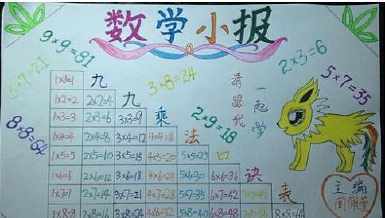 数学小报
9×9=81
3×8=24
2×3=6
5×7=35
2×9=18
8×8=64
一起学
九九乘法口诀表
1×1=1
1×2=2 2×2=4
1×3=3 2×3=6 3×3=9
1×4=4 2×4=8 3×4=12 4×4=16
1×5=5 2×5=10 3×5=15 4×5=20 5×5=25
1×6=6 2×6=12 3×6=18 4×6=24 5×6=30 6×6=36
1×7=7 2×7=14 3×7=21 4×7=28 5×7=35 6×7=42
1×8=8 2×8=16 3×8=24 4×8=32 5×8=40 6×8=48 8×8=64
主编